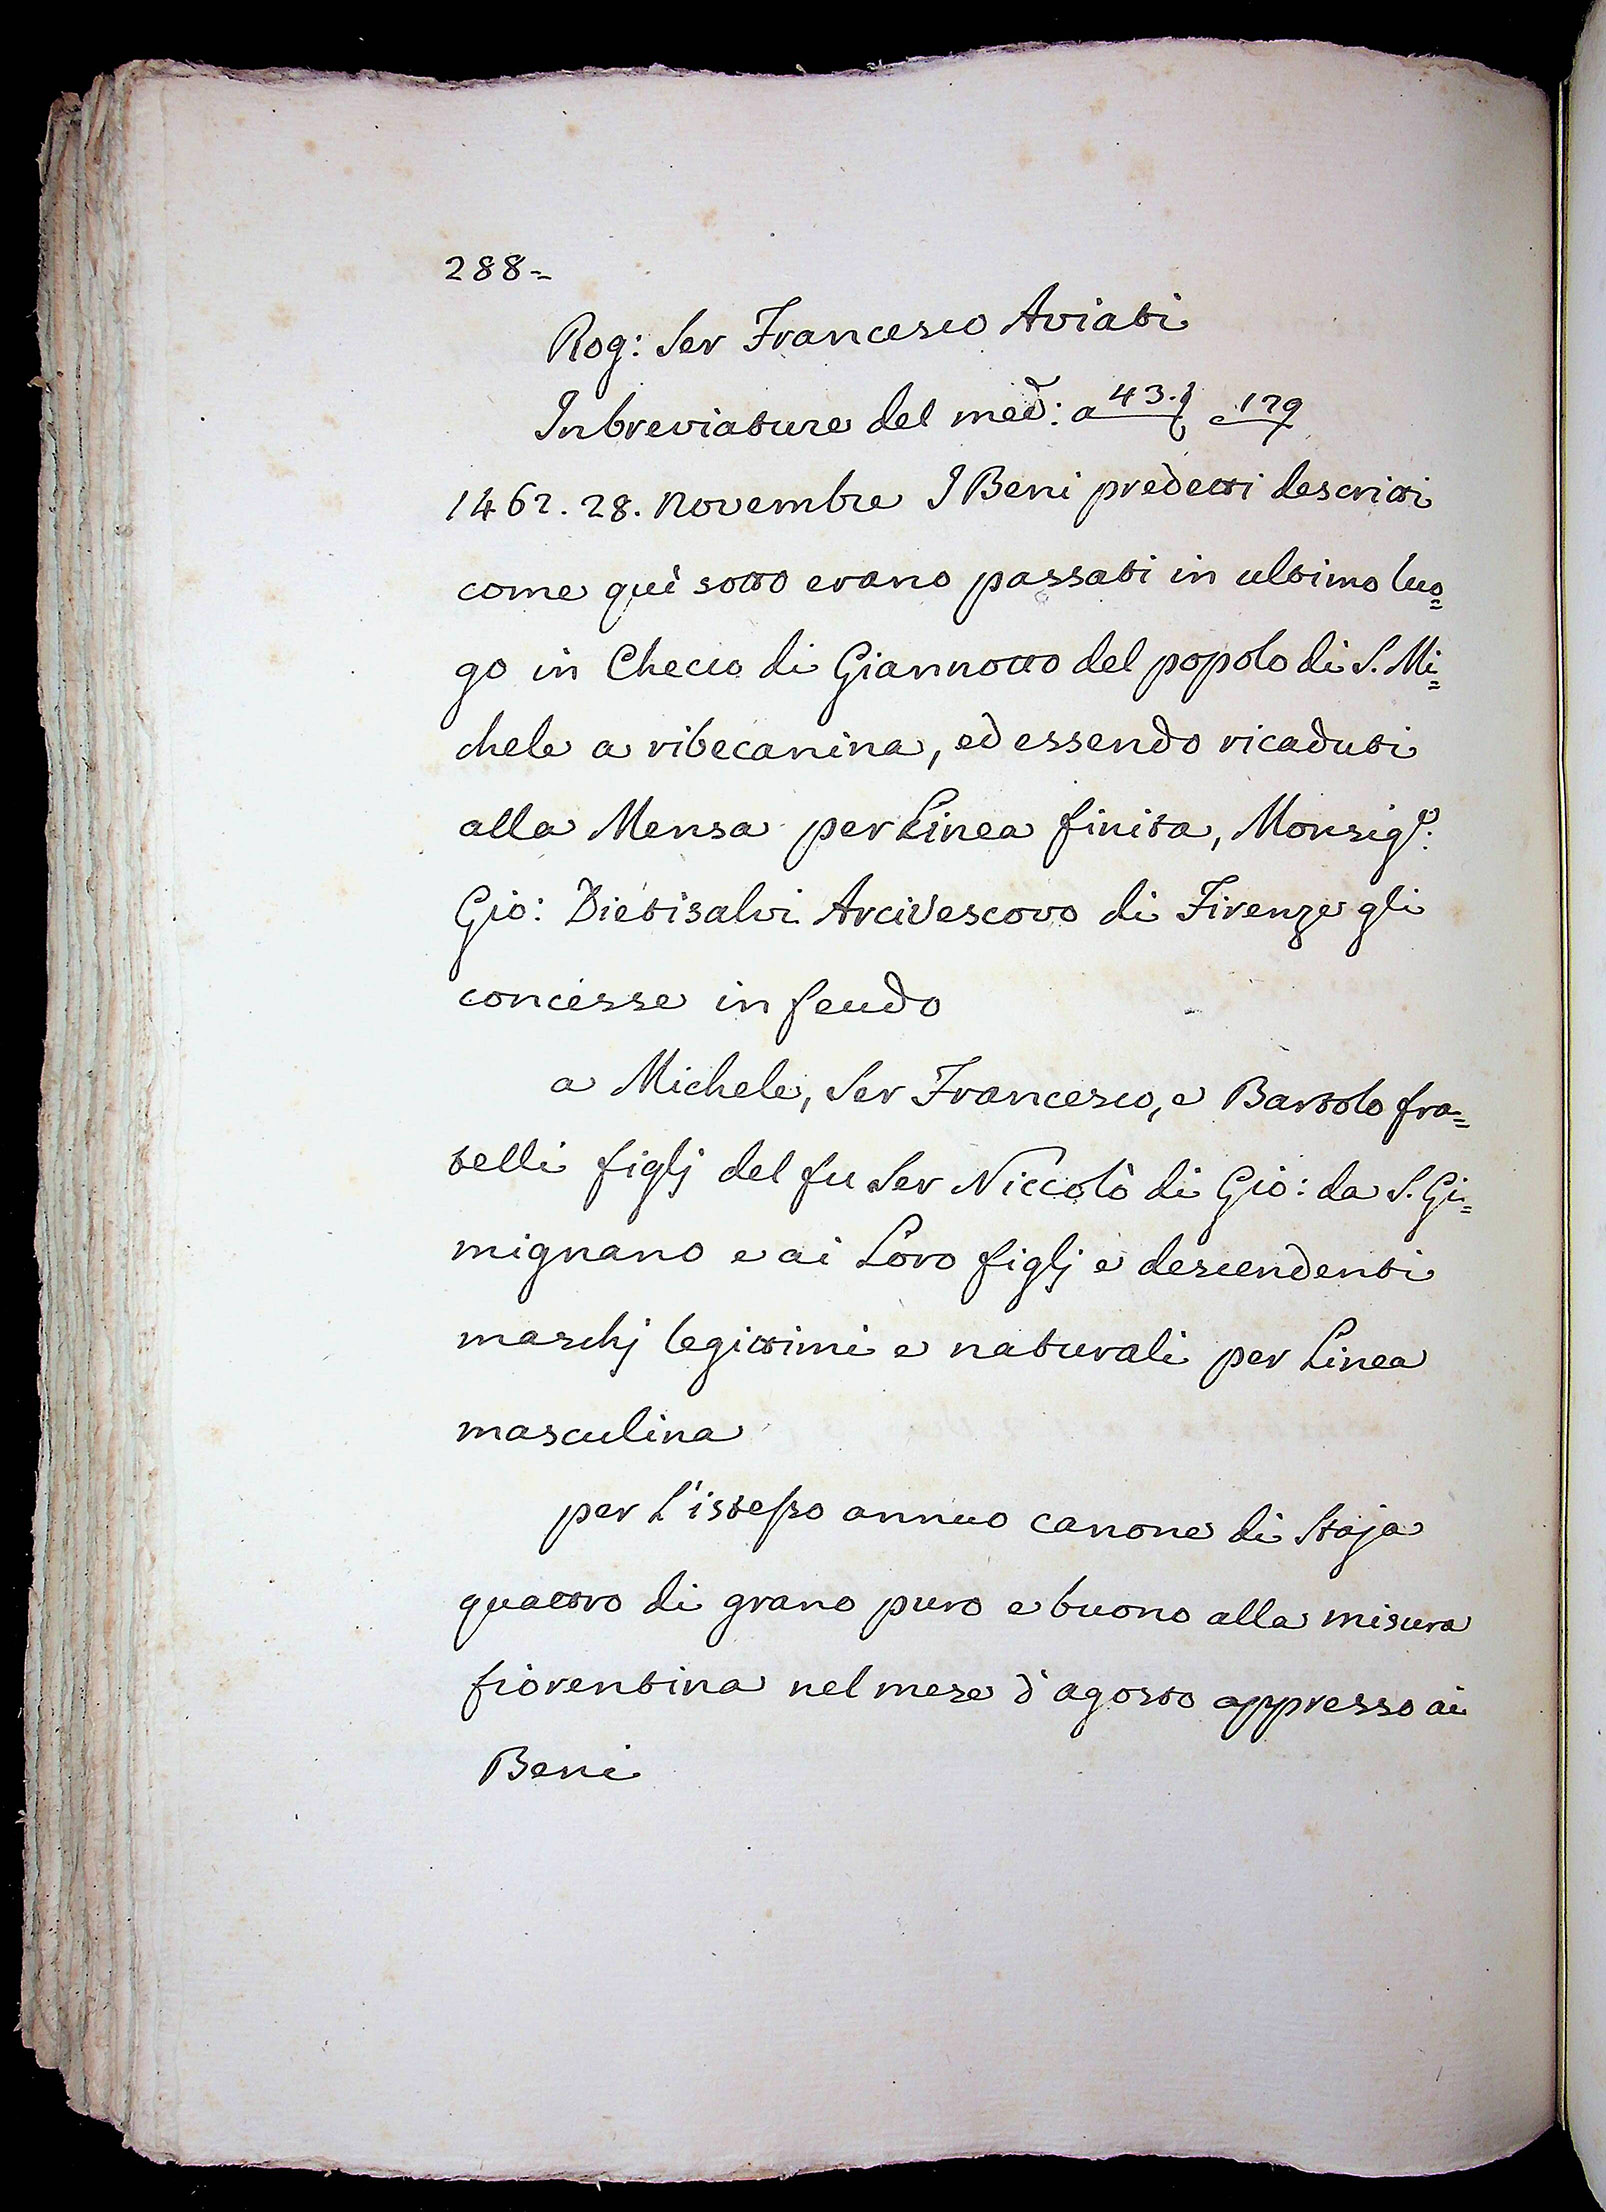 288=
Rog: Ser Francesco Aviati
Inbreviature del med: a 43. e 179
1462. 28. Novembre I Beni predetti descritti
come quì sotto erano passati in ultimo luo=
go in Checco di Giannotto del popolo di S. Mi=
chele a ribecanina, ed essendo ricaduti
alla Mensa per Linea finita, Monsigr:
Gio: Dietisalvi Arcivescovo di Firenze gli
concesse in feudo
a Michele, Ser Francesco, e Bartolo fra=
telli figlj del fu Ser Niccolò di Gio: da S. Gi=
mignano e ai Loro figlj e descendenti
maschj legittimi e naturali per Linea
masculina
per L'istesso annuo canone di Staja
quattro di grano puro e buono alla misura
fiorentina nel mese d'agosto appresso ai
Beni